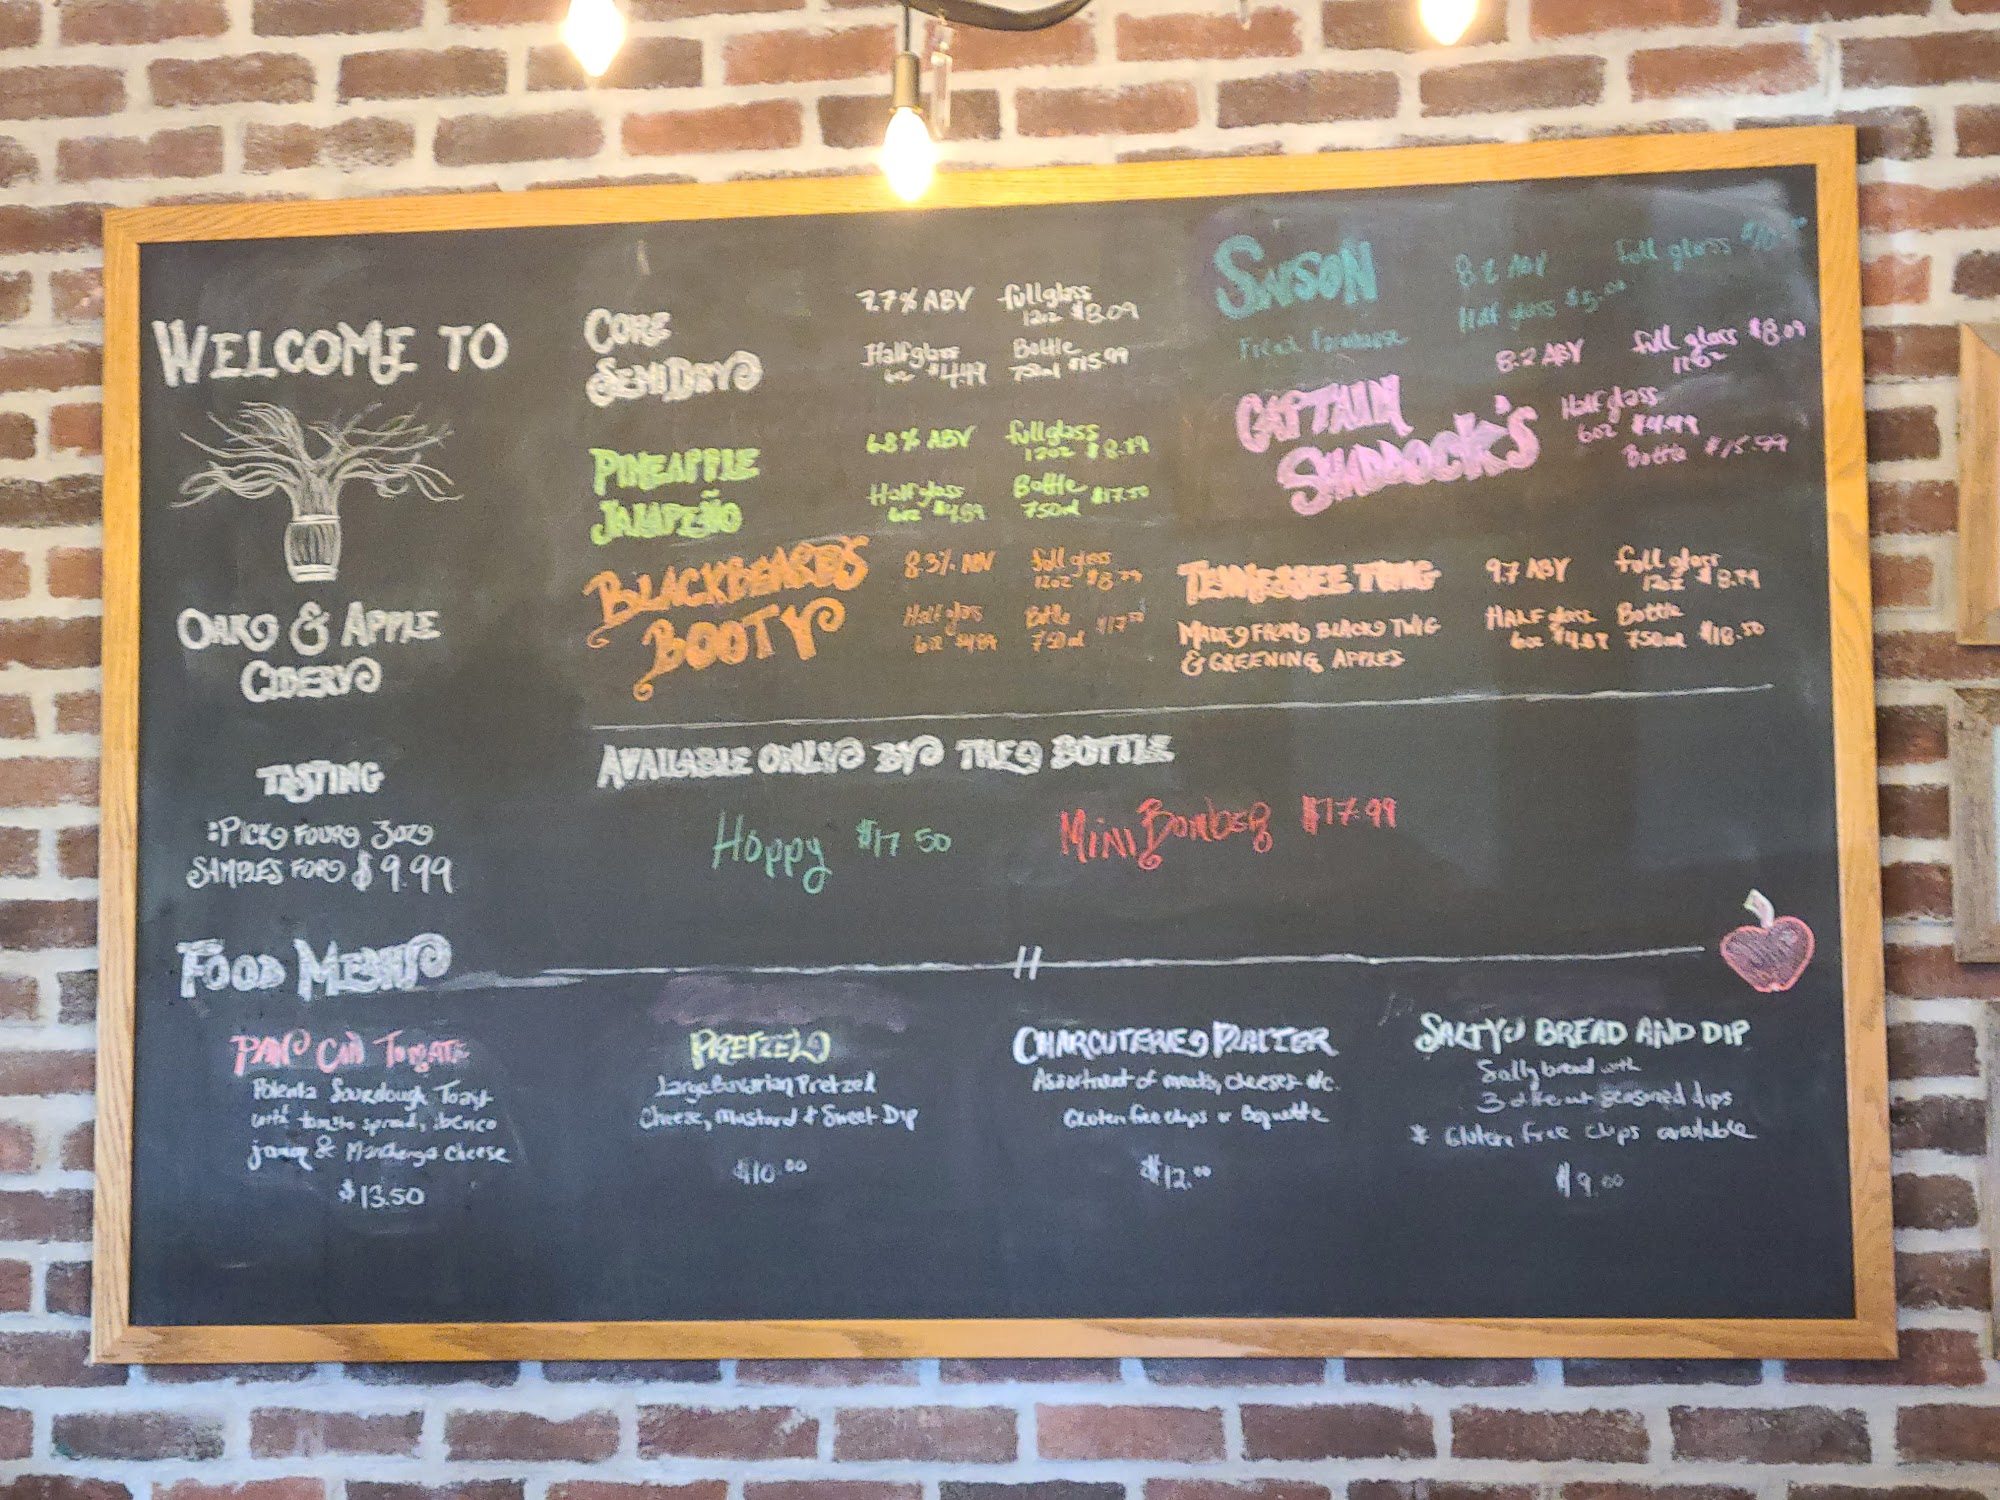 WELCOME TO
OAK & APPLE
CIDERY
TASTING
:PICK FOUR 3OZ
SAMPLES FOR $9.99
CORE
SEMI DRY
7.7% ABV
full glass
12oz $8.09
Half glass
6oz $4.49
Bottle
750ml $15.99
PINEAPPLE
JALAPEÑO
6.8% ABV
full glass
12oz
Half glass
6oz $4.89
Bottle
750ml $17.50
BLACKBEARD'S
BOOTY
8.3% ABV
full glass
12oz
Half glass
6oz $4.89
Bottle
750ml $17.50
8.2 ABV
full glass
Half glass $5.00
CAPTAIN
SHADDOCK'S
8.2 ABV
full glass $8.09
12oz
Half glass
6oz $4.49
Bottle $15.99
TENNESSEE TWIG
MADE FROM BLACK TWIG
& GREENING APPLES
9.7 ABV
full glass
12oz $8.79
HALF glass
6oz
Bottle
750ml $18.50
AVAILABLE ONLY BY THE BOTTLE
Hoppy $17.50
MINI BOMBER $17.99
FOOD MENU
PAN CON TOMATE
Polenta Sourdough Toast
with tomato spread,
& Manchengo Cheese
$13.50
PRETZEL
Large Bavarian Pretzel
Cheese, Mustard + Sweet Dip
$10.00
CHARCUTERIE PLATTER
Assortment of meats, cheeses etc.
Gluten free chips or Baguette
$12.00
SALTY BREAD AND DIP
Salty bread with
3 different seasoned dips
* Gluten free chips available
$9.00